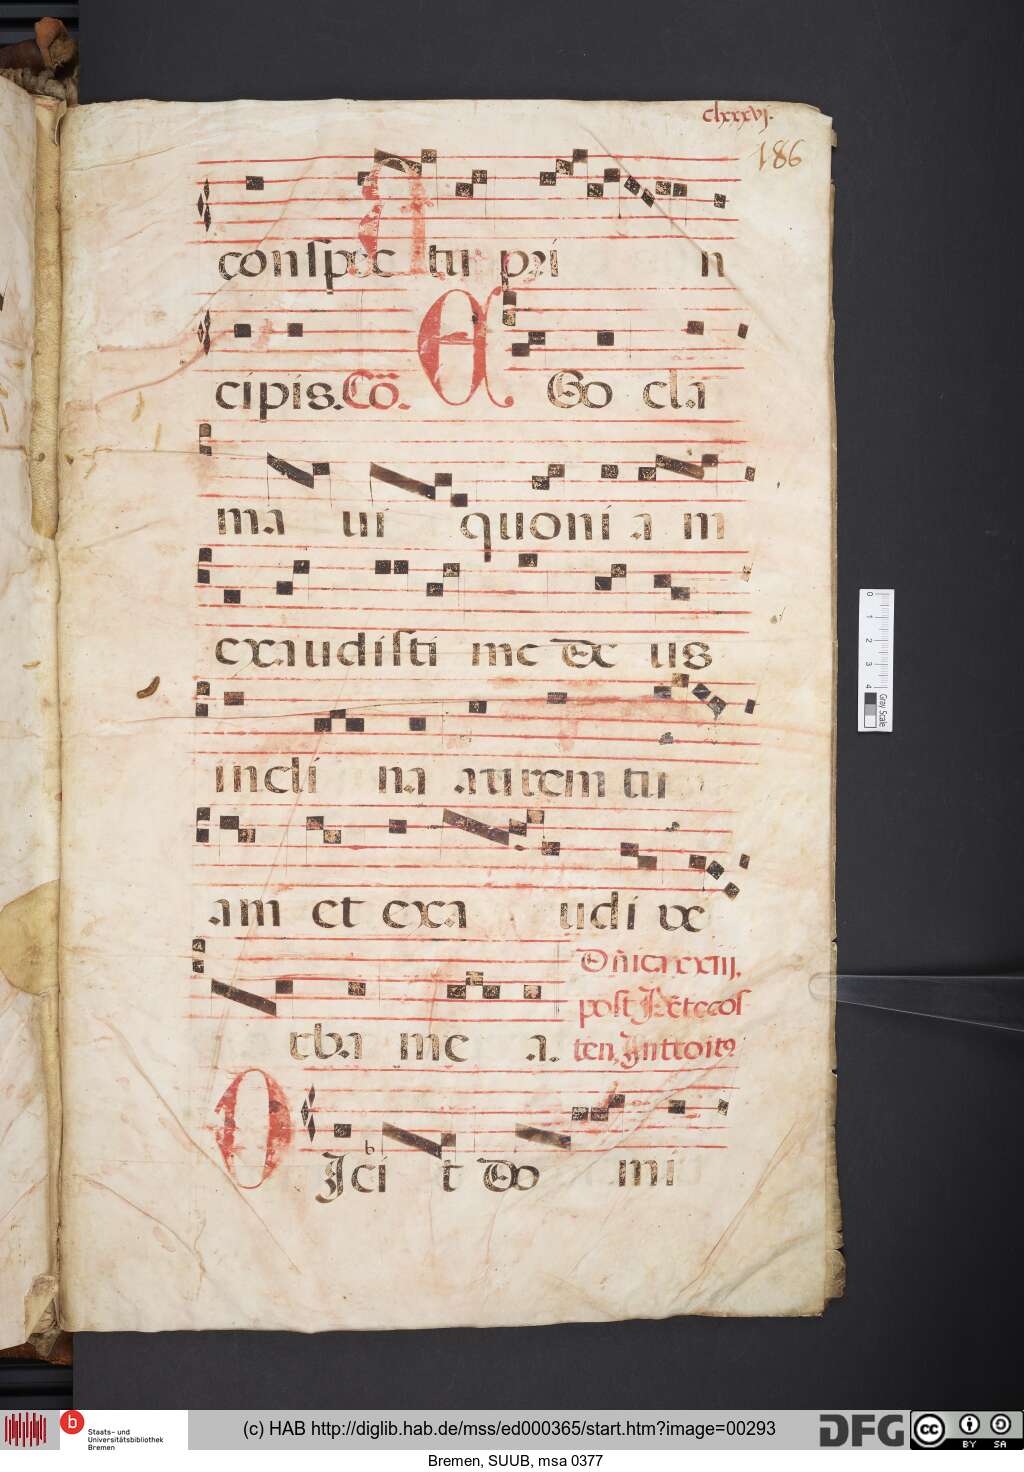 clxxxvj.
186
conspec tu pri n
cipis. Cō. E Go cla
ma ui quoni a m
exaudisti me de us
incli na aurem tu
am et exa udi ve
rba me a.
Dn̄ica xxiij.
post Pētecos
ten, Introitꝯ
D Jci t Do mi
0 1 2 3 4
Gray Scale
b
Staats- und
Universitätsbibliothek
Bremen
(c) HAB http://diglib.hab.de/mss/ed000365/start.htm?image=00293
DFG
cc BY SA
Bremen, SUUB, msa 0377